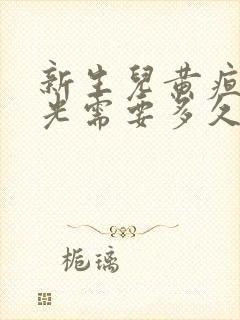 新生兒黄疸
光需要多久
栀璃